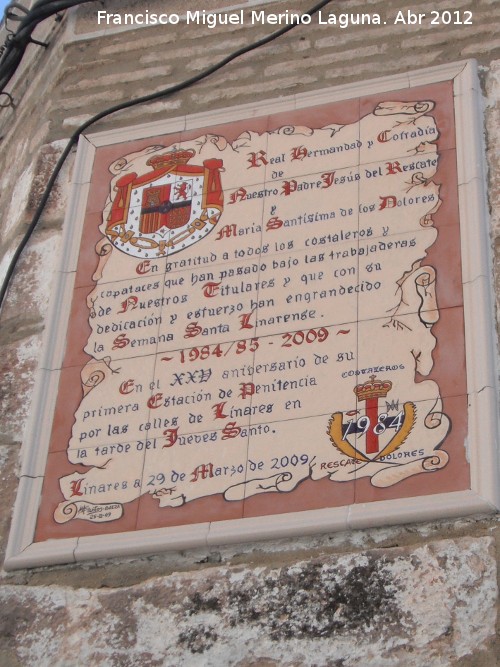 Francisco Miguel Merino Laguna. Abr 2012
Real Hermandad y Cofradía
de
Nuestro Padre Jesús del Rescate
y
María Santísima de los Dolores
En gratitud a todos los costaleros y
capataces que han pasado bajo las trabajaderas
de Nuestros Titulares y que con su
dedicación y esfuerzo han engrandecido
la Semana Santa Linarense.
~ 1984/85 - 2009 ~
En el XXV aniversario de su
primera Estación de Penitencia
por las calles de Linares en
la tarde del Jueves Santo.
Linares a 29 de Marzo de 2009
COSTALEROS
1984
RESCATE DOLORES